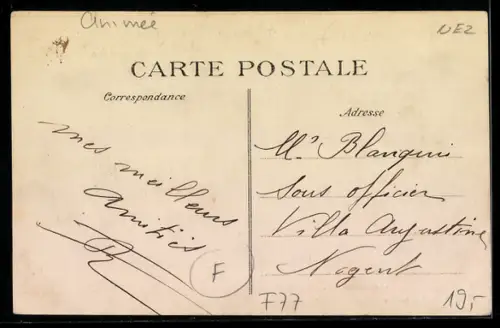 animée
NEZ
CARTE POSTALE
Correspondance
Adresse
mes meilleurs
amitiés
R
Mr Blanquin
Sous officier
Villa Augustine
Nogent
F
F77
195